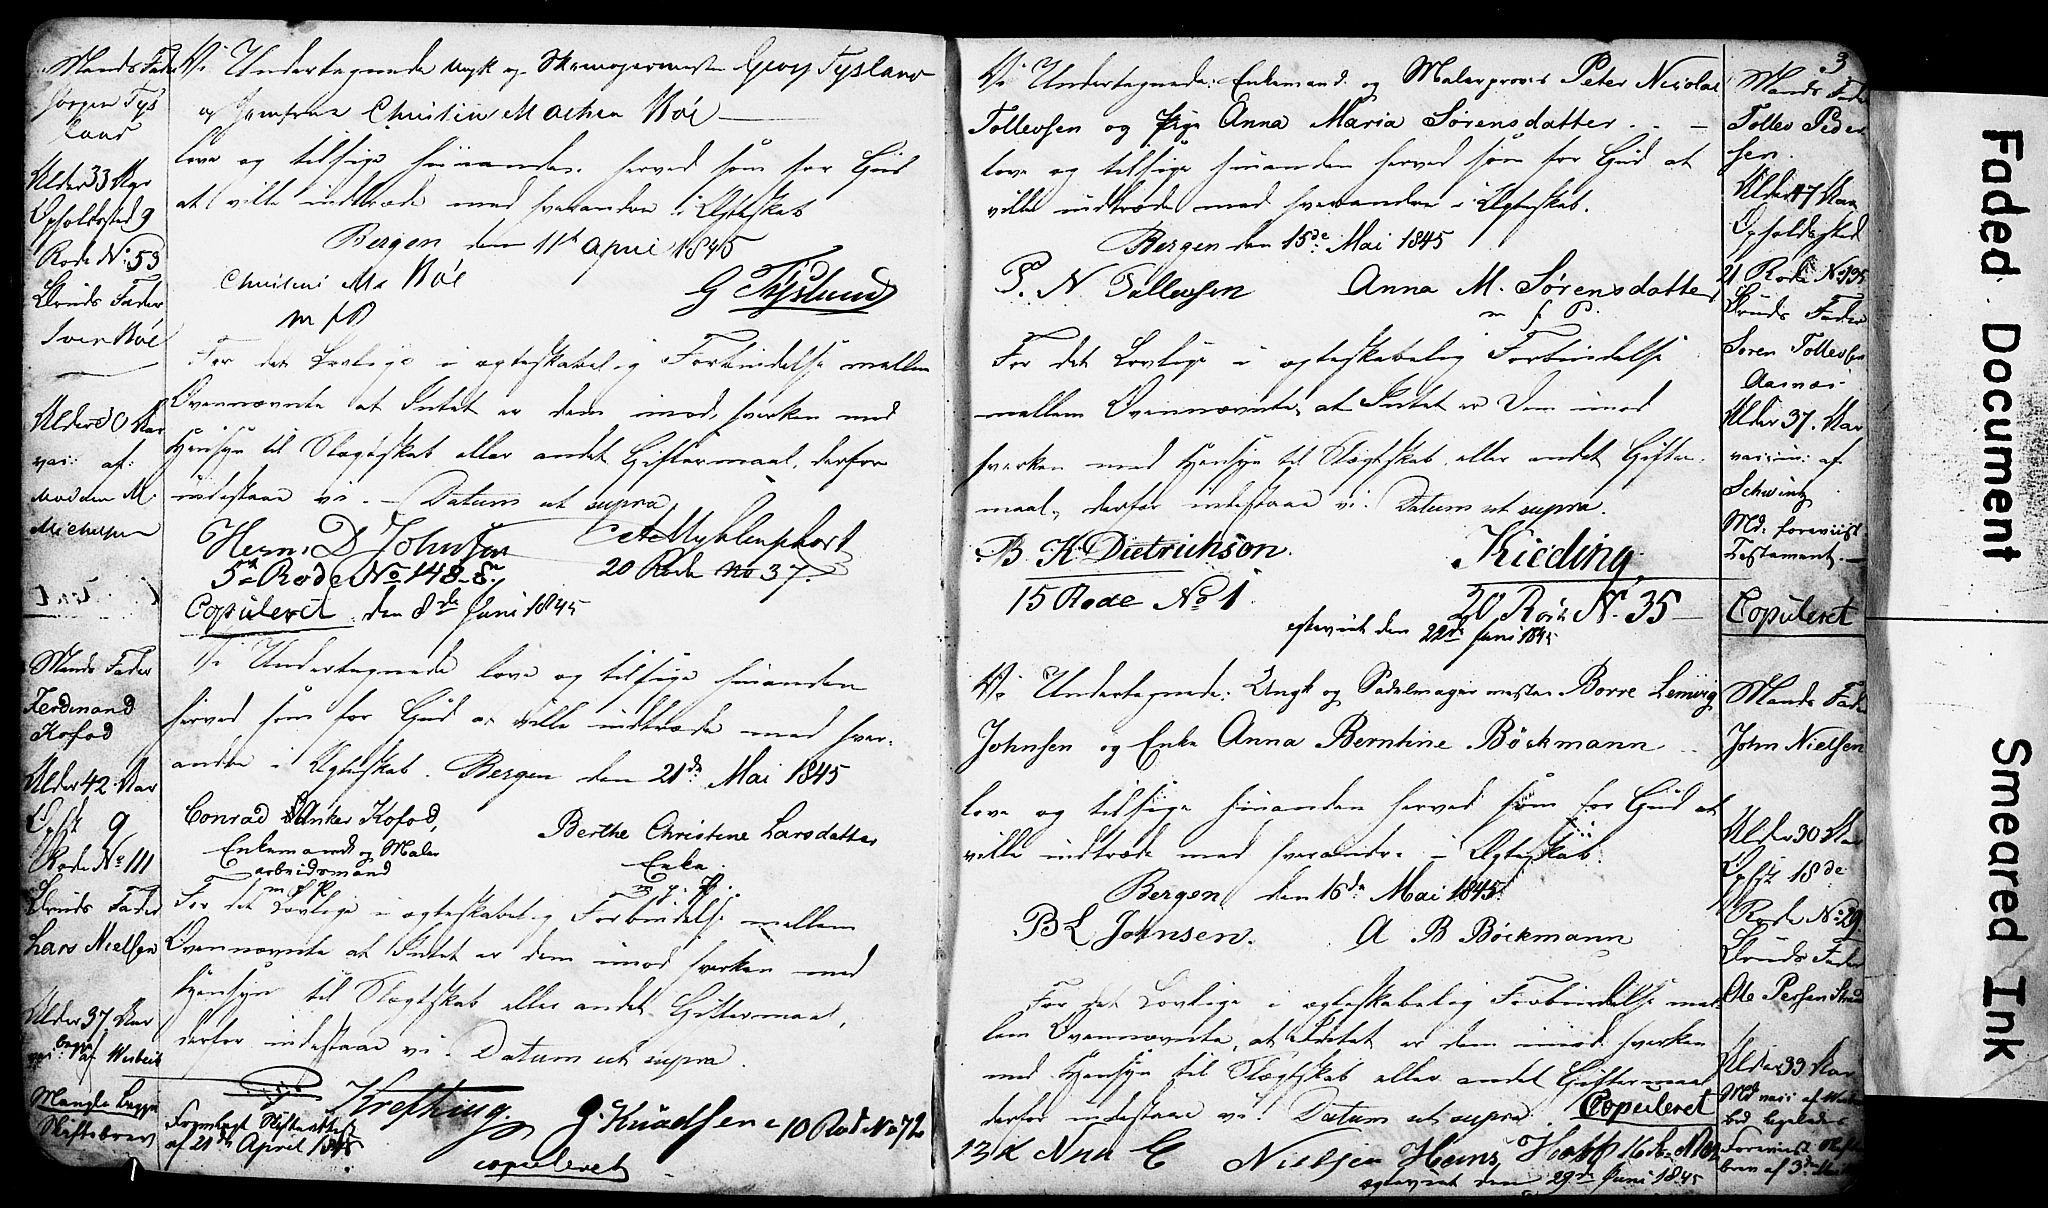 Mands Fader
Jørgen Tys
land
Alder 33 Aar
Opholdssted 9
Rode No 53
Bruds Fader
Iver Böe
Alder 30 Aar
vac: af
Michelsen
Vi Undertegnede Ungk og Skomagermester Georg Tysland
og Jomfrue Christine Böe
love og tilsige hinanden herved som for Gud
at ville indtræde med hverandre i Ægteskab
Bergen den 11te April 1845
Christine Böe
G Tysland
m f P
For det Lovlige i ægteskabelig Forbindelse mellem
Ovennævnte at Intet er dem imod, hverken med
Hensyn til Slægtskab eller andet Giftermaal, derfor
indestaae vi. – Datum ut supra
Herm: D Johnsen
5te Rode No 148
20 Rode No 37.
Copuleret den 8de Juni 1845
Mands Fader
Ferdinand
Kofod
Alder 42 Aar
Opst 9
Rode No 111
Bruds Fader
Lars Nielsen
Alder 37 Aar
Mangle begge
Skiftebrev
Vi Undertegnede love og tilsige hinanden
herved som for Gud at ville indtræde med hver-
andre i Ægteskab. Bergen den 21de Mai 1845
Conrad Anker Kofod,
Enkemand og Maler
arbeidsmand
m f P.
Berthe Christine Larsdatter
Enke.
m f. P.
For det Lovlige i ægteskabelig Forbindelse mellem
Ovennævnte at Intet er dem imod hverken med
Hensyn til Slægtskab eller andet Giftermaal,
derfor indestaae vi. Datum ut supra.
Krefting.
J. Knudsen 10 Rod No 72
Fremlagt Skifteattest
af 21de April 1845
copuleret
3
Vi Undertegnede: Enkemand og Malersvend Peter Nicolai
Tollevsen og Pige Anna Maria Sørensdatter
love og tilsige hinanden herved som for Gud at
ville indtræde med hverandre i Ægteskab.
Bergen den 15de Mai 1845
P. N Tollevsen
Anna M. Sørensdatter
m f P.
For det Lovlige i ægteskabelig Forbindelse
mellem Ovennævnte, at Intet er Dem imod
hverken med Hensyn til Slægtskab eller andet Gifter-
maal, derfor indestaae vi. Datum ut supra.
B. K. Dietrichson.
15 Rode No 1
Kieding
20 Rode No 35
egteviet den 22de Juni 1845
Mands Fader
Tollev Peder
sen.
Alder 47 Aar
Opholdssted
21 Rode No 195
Bruds Fader
Søren Tollevsen
Alder 37. Aar
vaccin: af
Schwintz
Md. foreviist
Testament.
Copuleret
Vi Undertegnede: Ungk og Sadelmagermester Borre Leming
Johnsen og Enke Anna Berntine Böckmann
love og tilsige hinanden herved som for Gud at
ville indtræde med hverandre i Ægteskab.
Bergen den 16de Mai 1845
B L Johnsen.
A B Böckmann
For det Lovlige i ægteskabelig Forbindelse mel-
lem Ovennævnte, at Intet er dem imod hverken
med Hensyn til Slægtskab eller andet Giftermaal
derfor indestaae vi. Datum ut supra. Copuleret
Nielsen Hans
egteviet den 29de Juni 1845
Mands Fader
John Nielsen
Alder 30 Aar
Opst 18de
Rode No 29.
Bruds Fader
Ole Persen
Alder 33 Aar
Faded Document
Smeared Ink